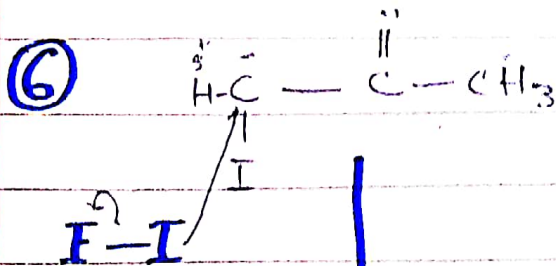 ⑥ H-C — C — CH3
I
I — I